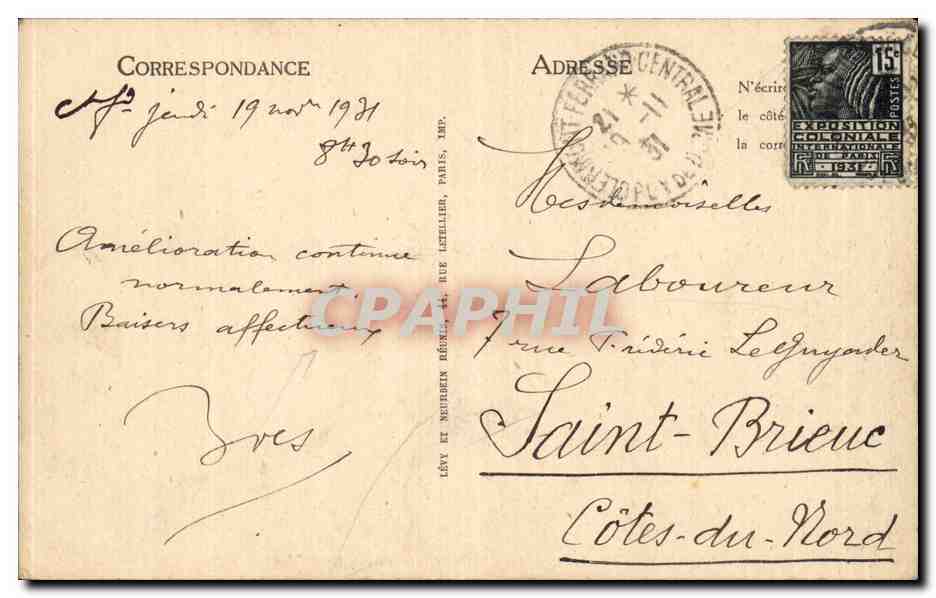 CORRESPONDANCE
jeudi 19 nov 1931
8h 30 soir
Amélioration continue
normalement.
Baisers affectueux
Yves
LÉVY ET NEURDEIN RÉUNIS, 44, RUE LETELLIER, PARIS, IMP.
ADRESSE
N'écrire
le côté
la corre
CLERMONT FERRAND CENTRAL PUY DE DOME
21
* -11
31
15c
POSTES
EXPOSITION
COLONIALE
INTERNATIONALE
DE PARIS
1931
Mesdemoiselles
Laboureur
7 rue Frédéric Le Guyader
Saint-Brieuc
Côtes-du-Nord
CPAPHIL